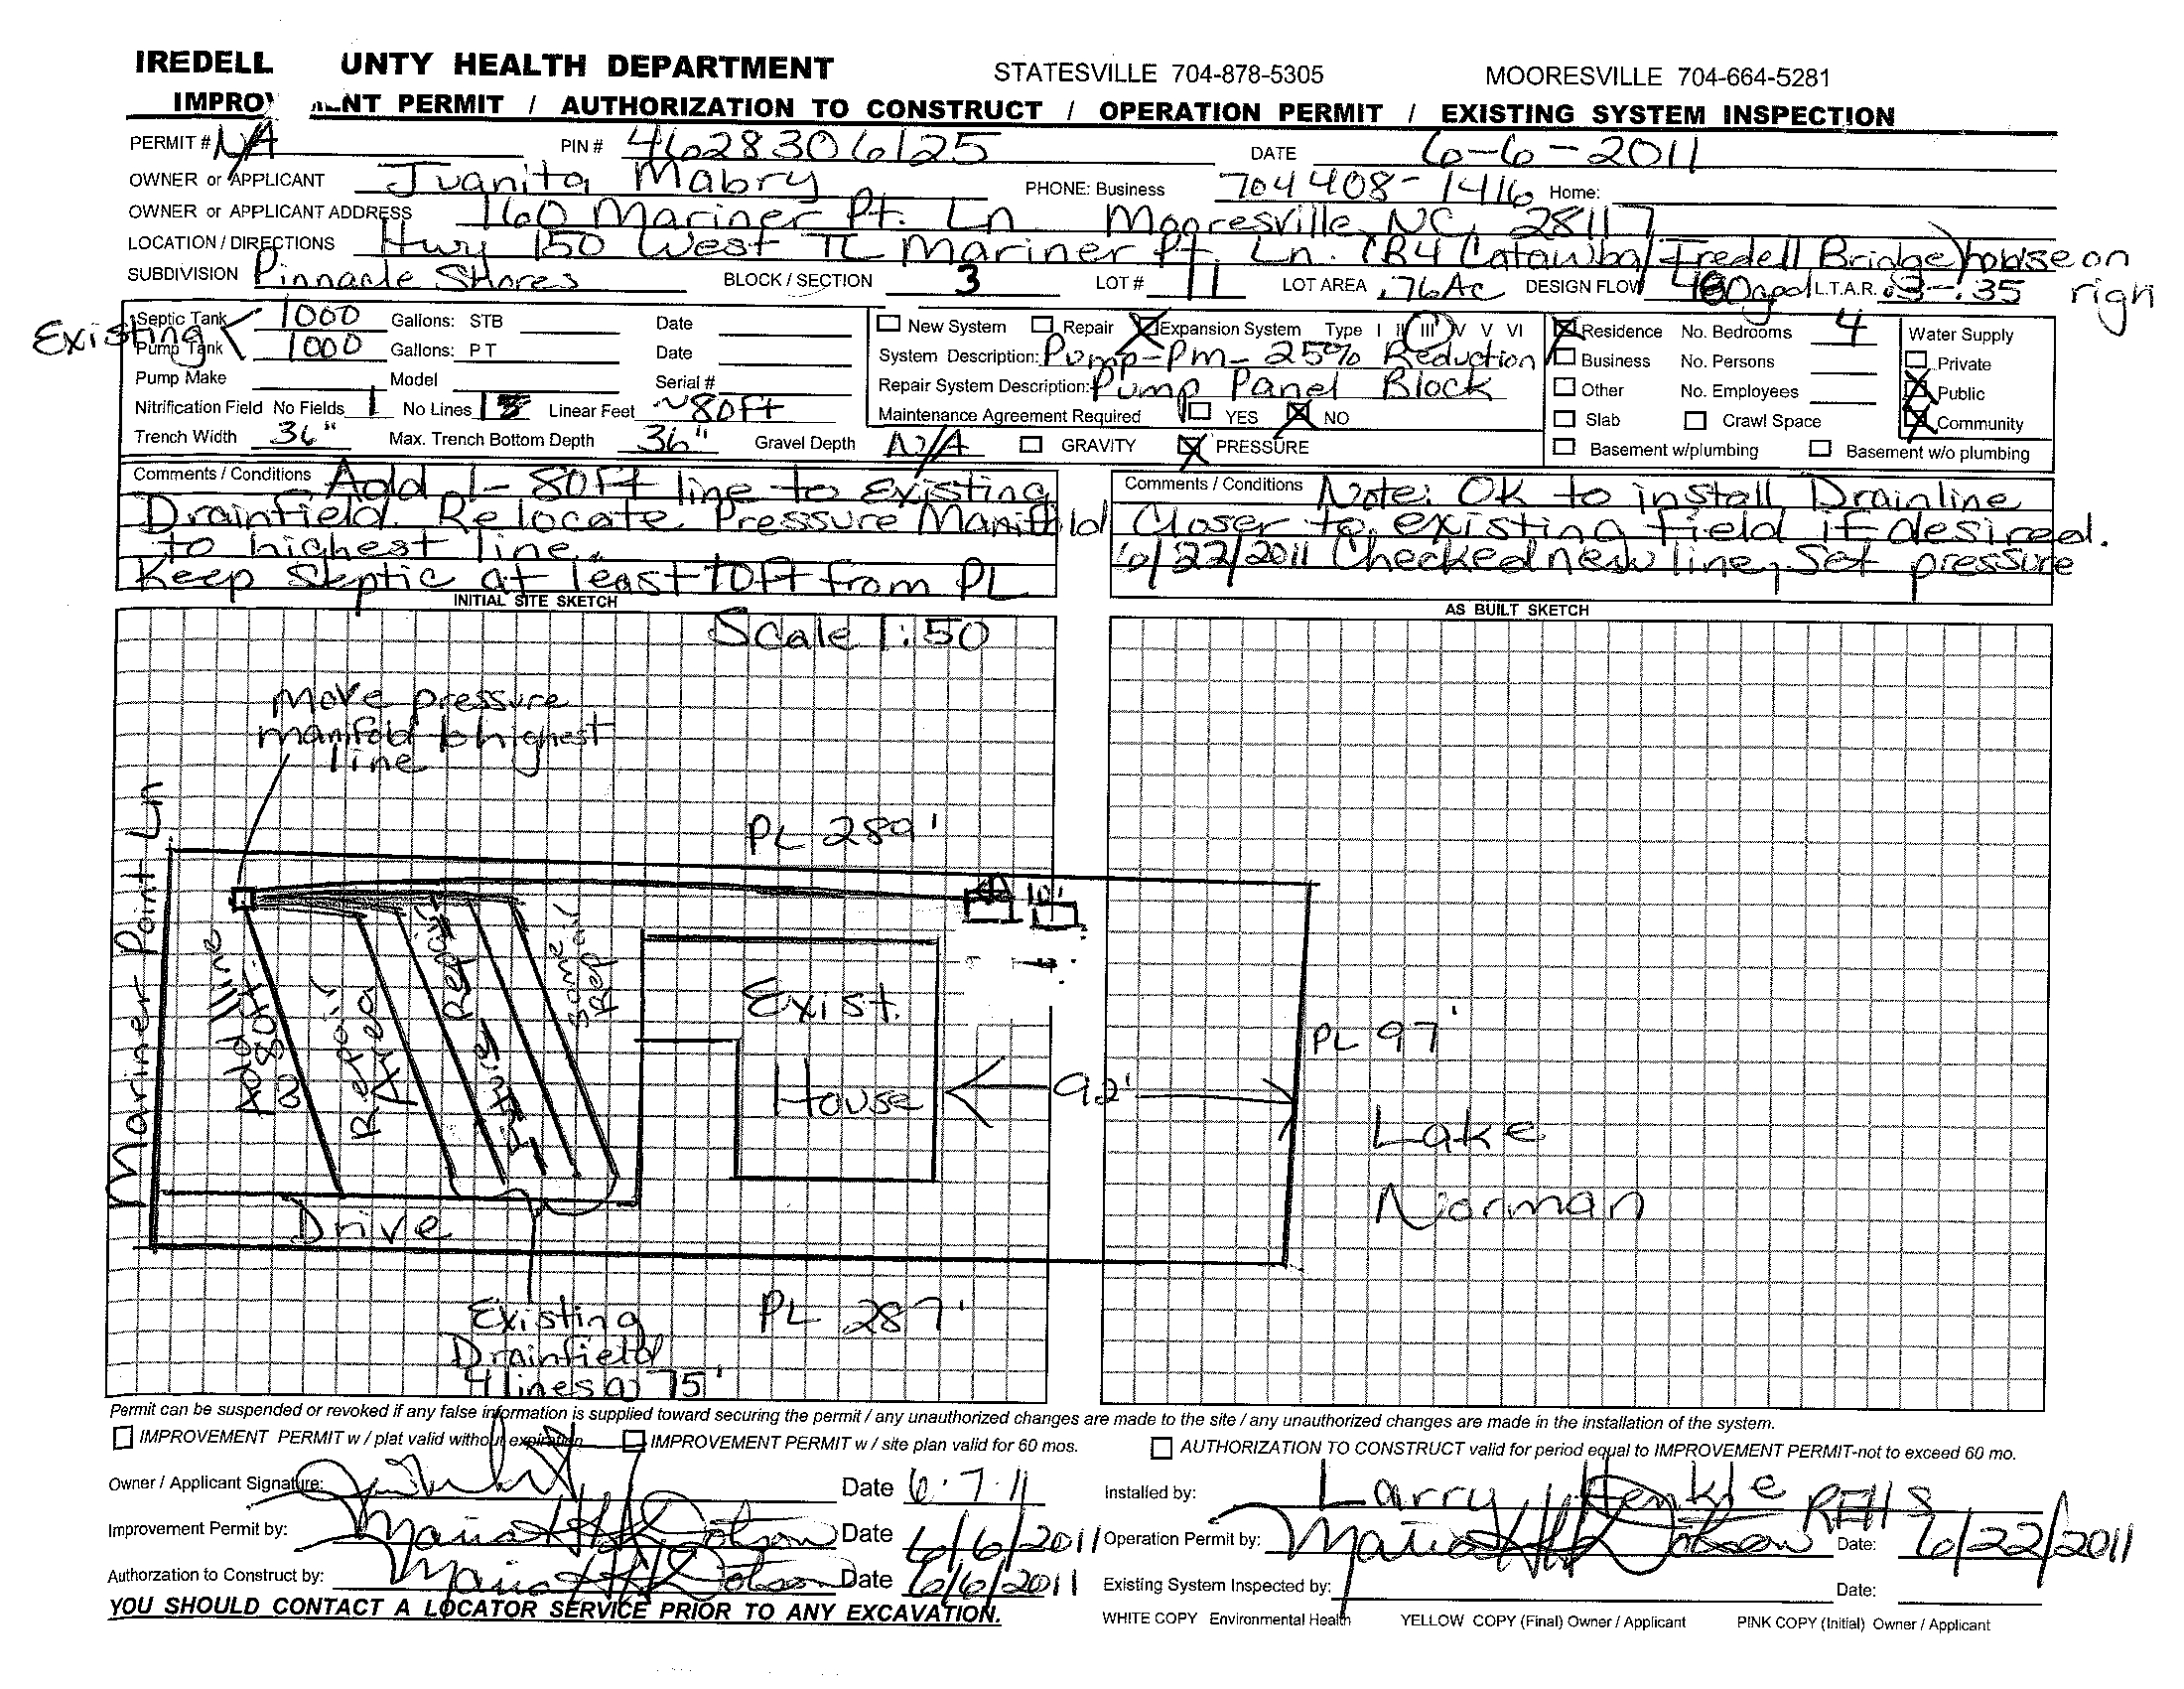 IREDELL UNTY HEALTH DEPARTMENT STATESVILLE 704-878-5305 MOORESVILLE 704-664-5281
IMPROV NT PERMIT / AUTHORIZATION TO CONSTRUCT / OPERATION PERMIT / EXISTING SYSTEM INSPECTION
PERMIT # N/A PIN # 4628306125 DATE 6-6-2011
OWNER or APPLICANT Juanita Mabry PHONE: Business 704 408-1416 Home:
OWNER or APPLICANT ADDRESS 160 Mariner Pt. Ln Mooresville, NC, 28117
LOCATION / DIRECTIONS Hwy 150 West TL Mariner Pt. Ln. (B4 Catawba/Iredell Bridge) house on
SUBDIVISION Pinnacle Shores BLOCK / SECTION 3 LOT # 11 LOT AREA .76Ac DESIGN FLOW 480gpd L.T.A.R. .3-.35 righ
Existing
Septic Tank 1000 Gallons: STB Date
Pump Tank 1000 Gallons: PT Date
Pump Make Model Serial #
Nitrification Field No Fields 1 No Lines 1 Linear Feet ~80ft
Trench Width 36" Max. Trench Bottom Depth 36" Gravel Depth N/A GRAVITY PRESSURE
New System Repair Expansion System Type I II III V V VI
System Description: Pump-Pm-25% Reduction
Repair System Description: Pump Panel Block
Maintenance Agreement Required YES NO
Residence No. Bedrooms 4
Business No. Persons
Other No. Employees
Slab Crawl Space
Basement w/plumbing Basement w/o plumbing
Water Supply
Private
Public
Community
Comments / Conditions Add 1-80ft line to Existing
Drainfield. Relocate Pressure Manifold
to highest line.
Keep Septic at least 10ft from PL
Comments / Conditions Note: OK to install Drainline
Closer to existing field if desired.
6/22/2011 Checked new line, Set pressure
INITIAL SITE SKETCH
AS BUILT SKETCH
Scale 1:50
Move pressure
manifold to highest
line
PL 289'
10'
Mariner Point Ln
Add 1 line
@ 80ft
Repair
Area
Repair
Some
Repair
Exist.
House
92'
PL 97'
Lake
Norman
Drive
Existing
Drainfield
4 lines @ 75'
PL 287'
Permit can be suspended or revoked if any false information is supplied toward securing the permit / any unauthorized changes are made to the site / any unauthorized changes are made in the installation of the system.
IMPROVEMENT PERMIT w / plat valid without expiration IMPROVEMENT PERMIT w / site plan valid for 60 mos. AUTHORIZATION TO CONSTRUCT valid for period equal to IMPROVEMENT PERMIT-not to exceed 60 mo.
Owner / Applicant Signature: Date 6.7.11
Installed by: Larry Henkle
Improvement Permit by: Date 6/6/2011
Operation Permit by: REHS Date: 6/22/2011
Authorzation to Construct by: Date 6/6/2011
Existing System Inspected by: Date:
YOU SHOULD CONTACT A LOCATOR SERVICE PRIOR TO ANY EXCAVATION.
WHITE COPY Environmental Health YELLOW COPY (Final) Owner / Applicant PINK COPY (Initial) Owner / Applicant